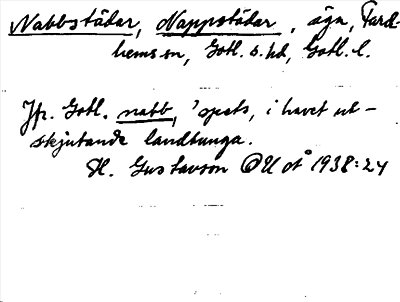 Nabbstädar, Nappstädar, ägn, Fard-
hems sn, Gotl. s. hd, Gotl. l.
Jfr. Gotl. nabb, 'spets, i havet ut-
skjutande landtunga.
H. Gustavson OUÅ 1938:24